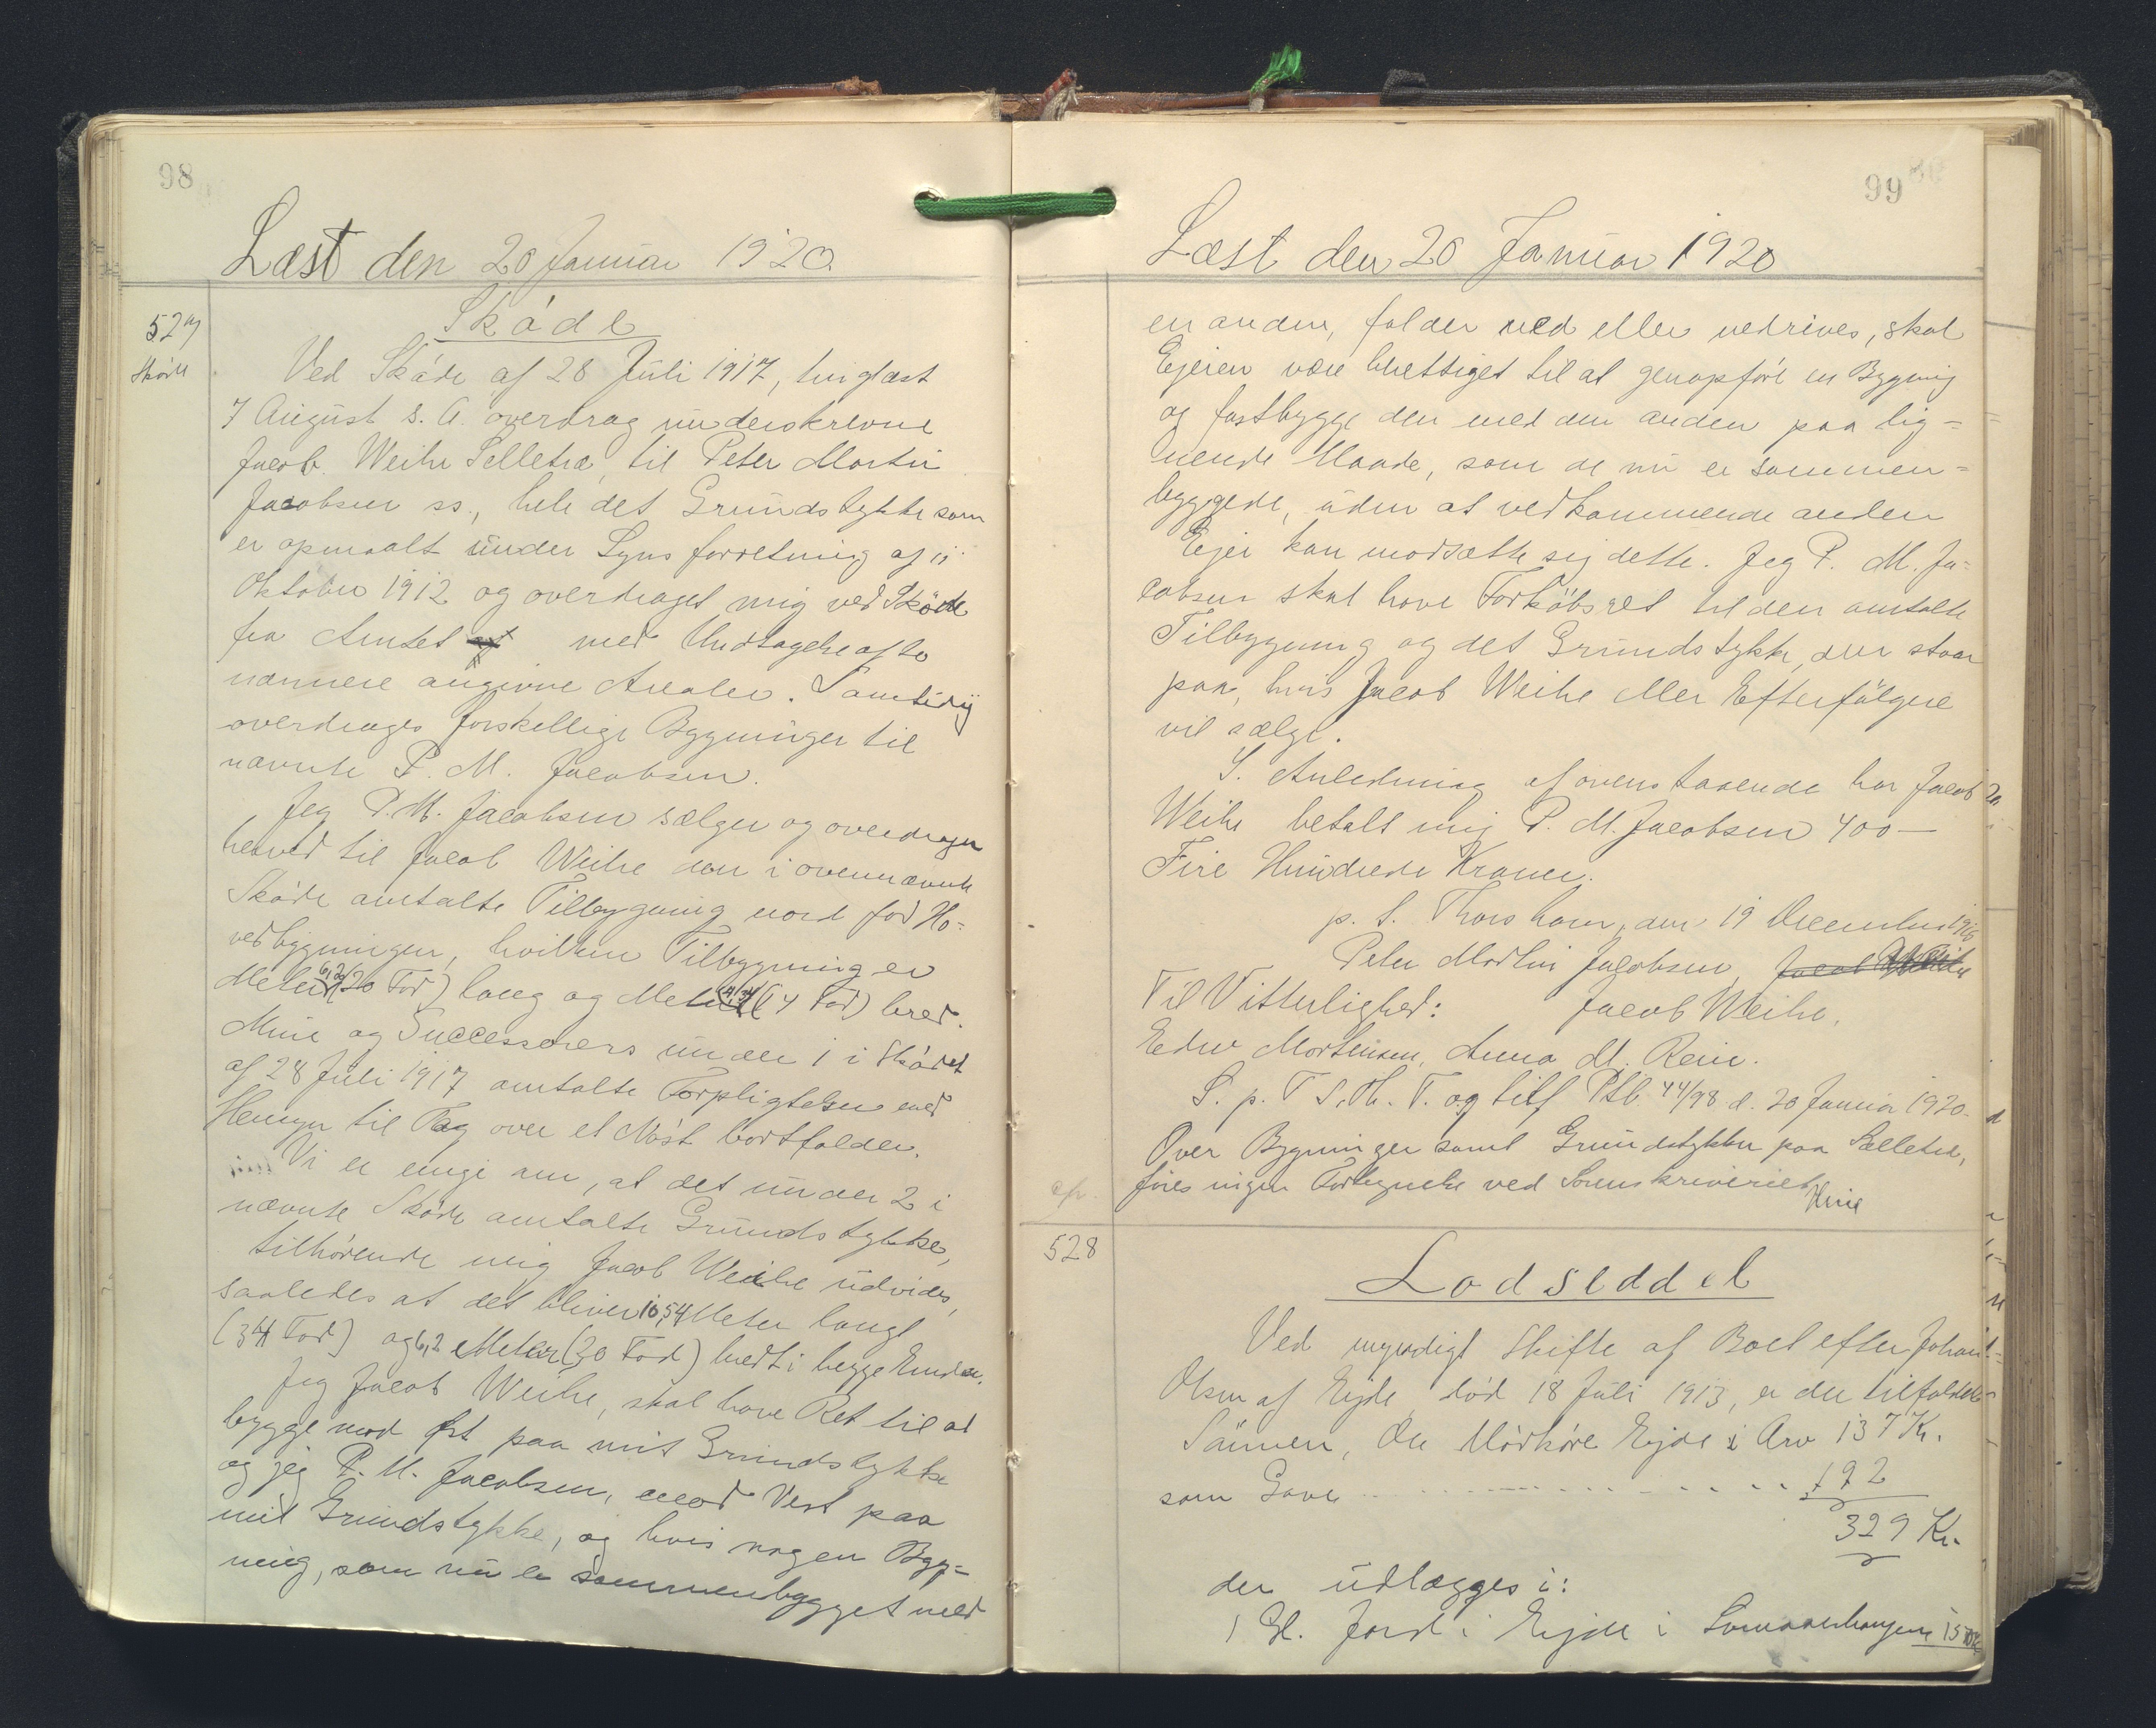 98
Læst den 20 Januar 1920.
527
Skøde
Skøde
Ved Skøde af 28 Juli 1917, tinglæst
7 August s. A. overdrog underskrevne
Jacob Weihe Selletræ, til Peter Martin
Jacobsen ss., hele det Grundstykke som
er opmaalt under Synsforretning af 11
Oktober 1912 og overdraget mig ved Skøde
fra Amtet med Undtagelse af to
nærmere angivne Arealer. Samtidig
overdroges forskellige Bygninger til
nævnte P. M. Jacobsen.
Jeg P. M. Jacobsen sælger og overdrager
herved til Jacob Weihe den i ovennævnte
Skøde omtalte Tilbygning nord for Ho-
vedbygningen, hvilken Tilbygning er
Meter 6,2 (20 Fod) lang og Meter 4,34 (14 Fod) bred.
Mine og Successorers under 1 i Skødet
af 28 Juli 1917 omtalte Forpligtelser med
Hensyn til Tag over et Nøst bortfalder.
Vi er enige om, at det under 2 i
nævnte Skøde omtalte Grundstykke,
tilhørende mig Jacob Weihe udvides,
saaledes at det bliver 10,54 Meter langt
(34 Fod) og 6,2 Meter (20 Fod) bredt i begge Ender.
Jeg Jacob Weihe, skal have Ret til at
bygge mod Øst paa mit Grundstykke
og jeg P. M. Jacobsen, mod Vest paa
mit Grundstykke, og hvis nogen Byg-
ning, som nu er sammenbygget med
99
Læst den 20 Januar 1920
en anden, falder ned eller nedrives, skal
Ejeren være berettiget til at genopføre en Bygning
og fastbygge den med den anden paa lig-
nende Maade, som de nu er sammen-
byggede, uden at vedkommende anden
Ejer kan modsætte sig dette. Jeg P. M. Ja-
cobsen skal have Forkøbsret til den omtalte
Tilbygning og det Grundstykke, der staar
paa, hvis Jacob Weihe eller Efterfølgere
vil sælge.
I Anledning af ovenstaaende har Jacob
Weihe betalt mig P. M. Jacobsen 400 —
Fire Hundrede Kroner.
p. t. Thorshavn, den 19 December
Peter Martin Jacobsen,
Til Vitterlighed: Jacob Weihe.
Mortensen, Anna M. Rein.
S. p. T. S. Th. T. og tilf Ptb 44/98 d. 20 Januar 1920.
Over Bygninger samt Grundstykker paa Selletræ,
føres ingen Fortegnelse ved Sorenskriveriet
528
Lodseddel
Ved myndigt Skifte af Boet efter
Olsen af Ejde, død 18 Juli 1913, er der tilfaldet
Sønnen, Ole Mørkøre Ejde i Arv 137 Kr.
som Gave 192
329 Kr.
der udlægges i:
1 Gl. Jord i Ejde i